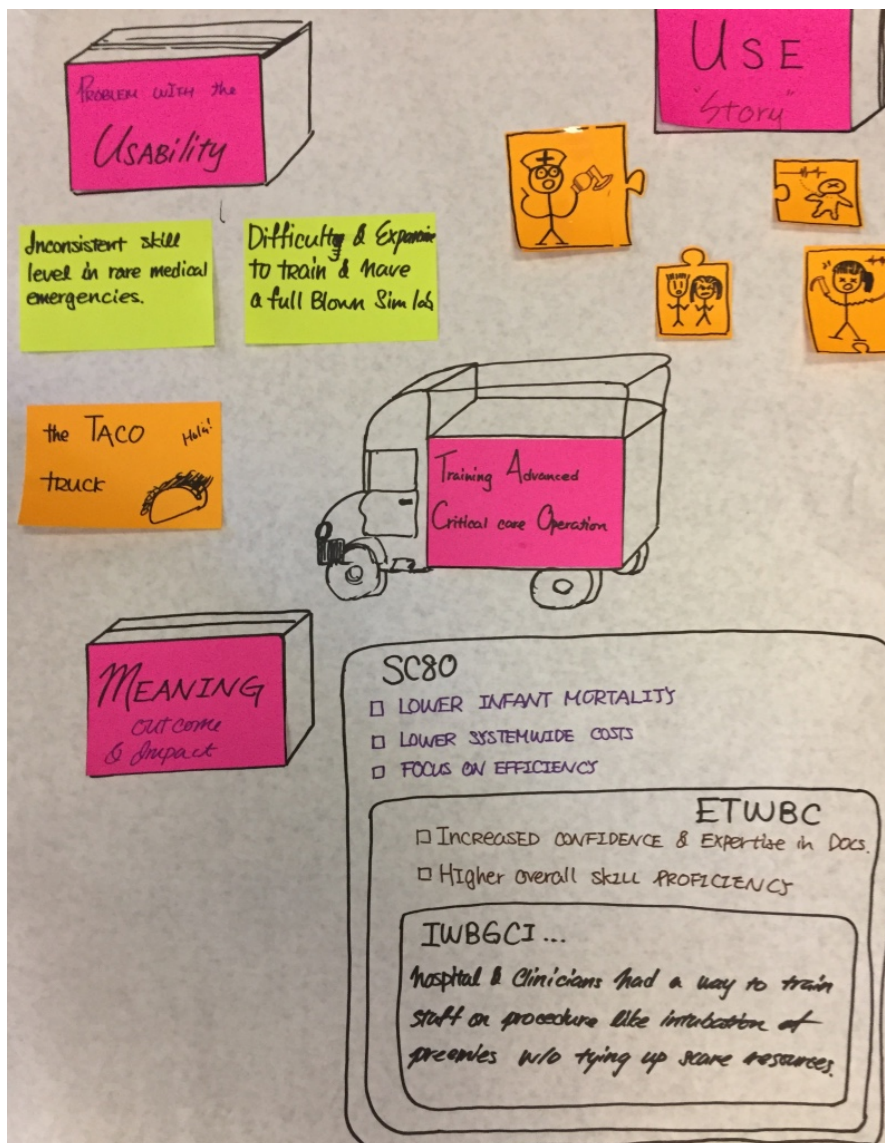 PROBLEM WITH the
USABILITY
USE
"Story"
Inconsistent skill
level in rare medical
emergencies.
Difficulty & Expensive
to train & have
a full Blown Sim lab
the TACO
Hola!
TRUCK
Training Advanced
Critical care Operation
MEANING
outcome
& Impact
SC80
LOWER INFANT MORTALITY
LOWER SYSTEMWIDE COSTS
FOCUS ON EFFICIENCY
ETWBC
INCREASED CONFIDENCE & Expertise in DOCS.
Higher overall SKILL PROFICIENCY
IWBGCI...
hospital & Clinicians had a way to train
staff on procedure like intubation of
preemies w/o tying up scare resources.